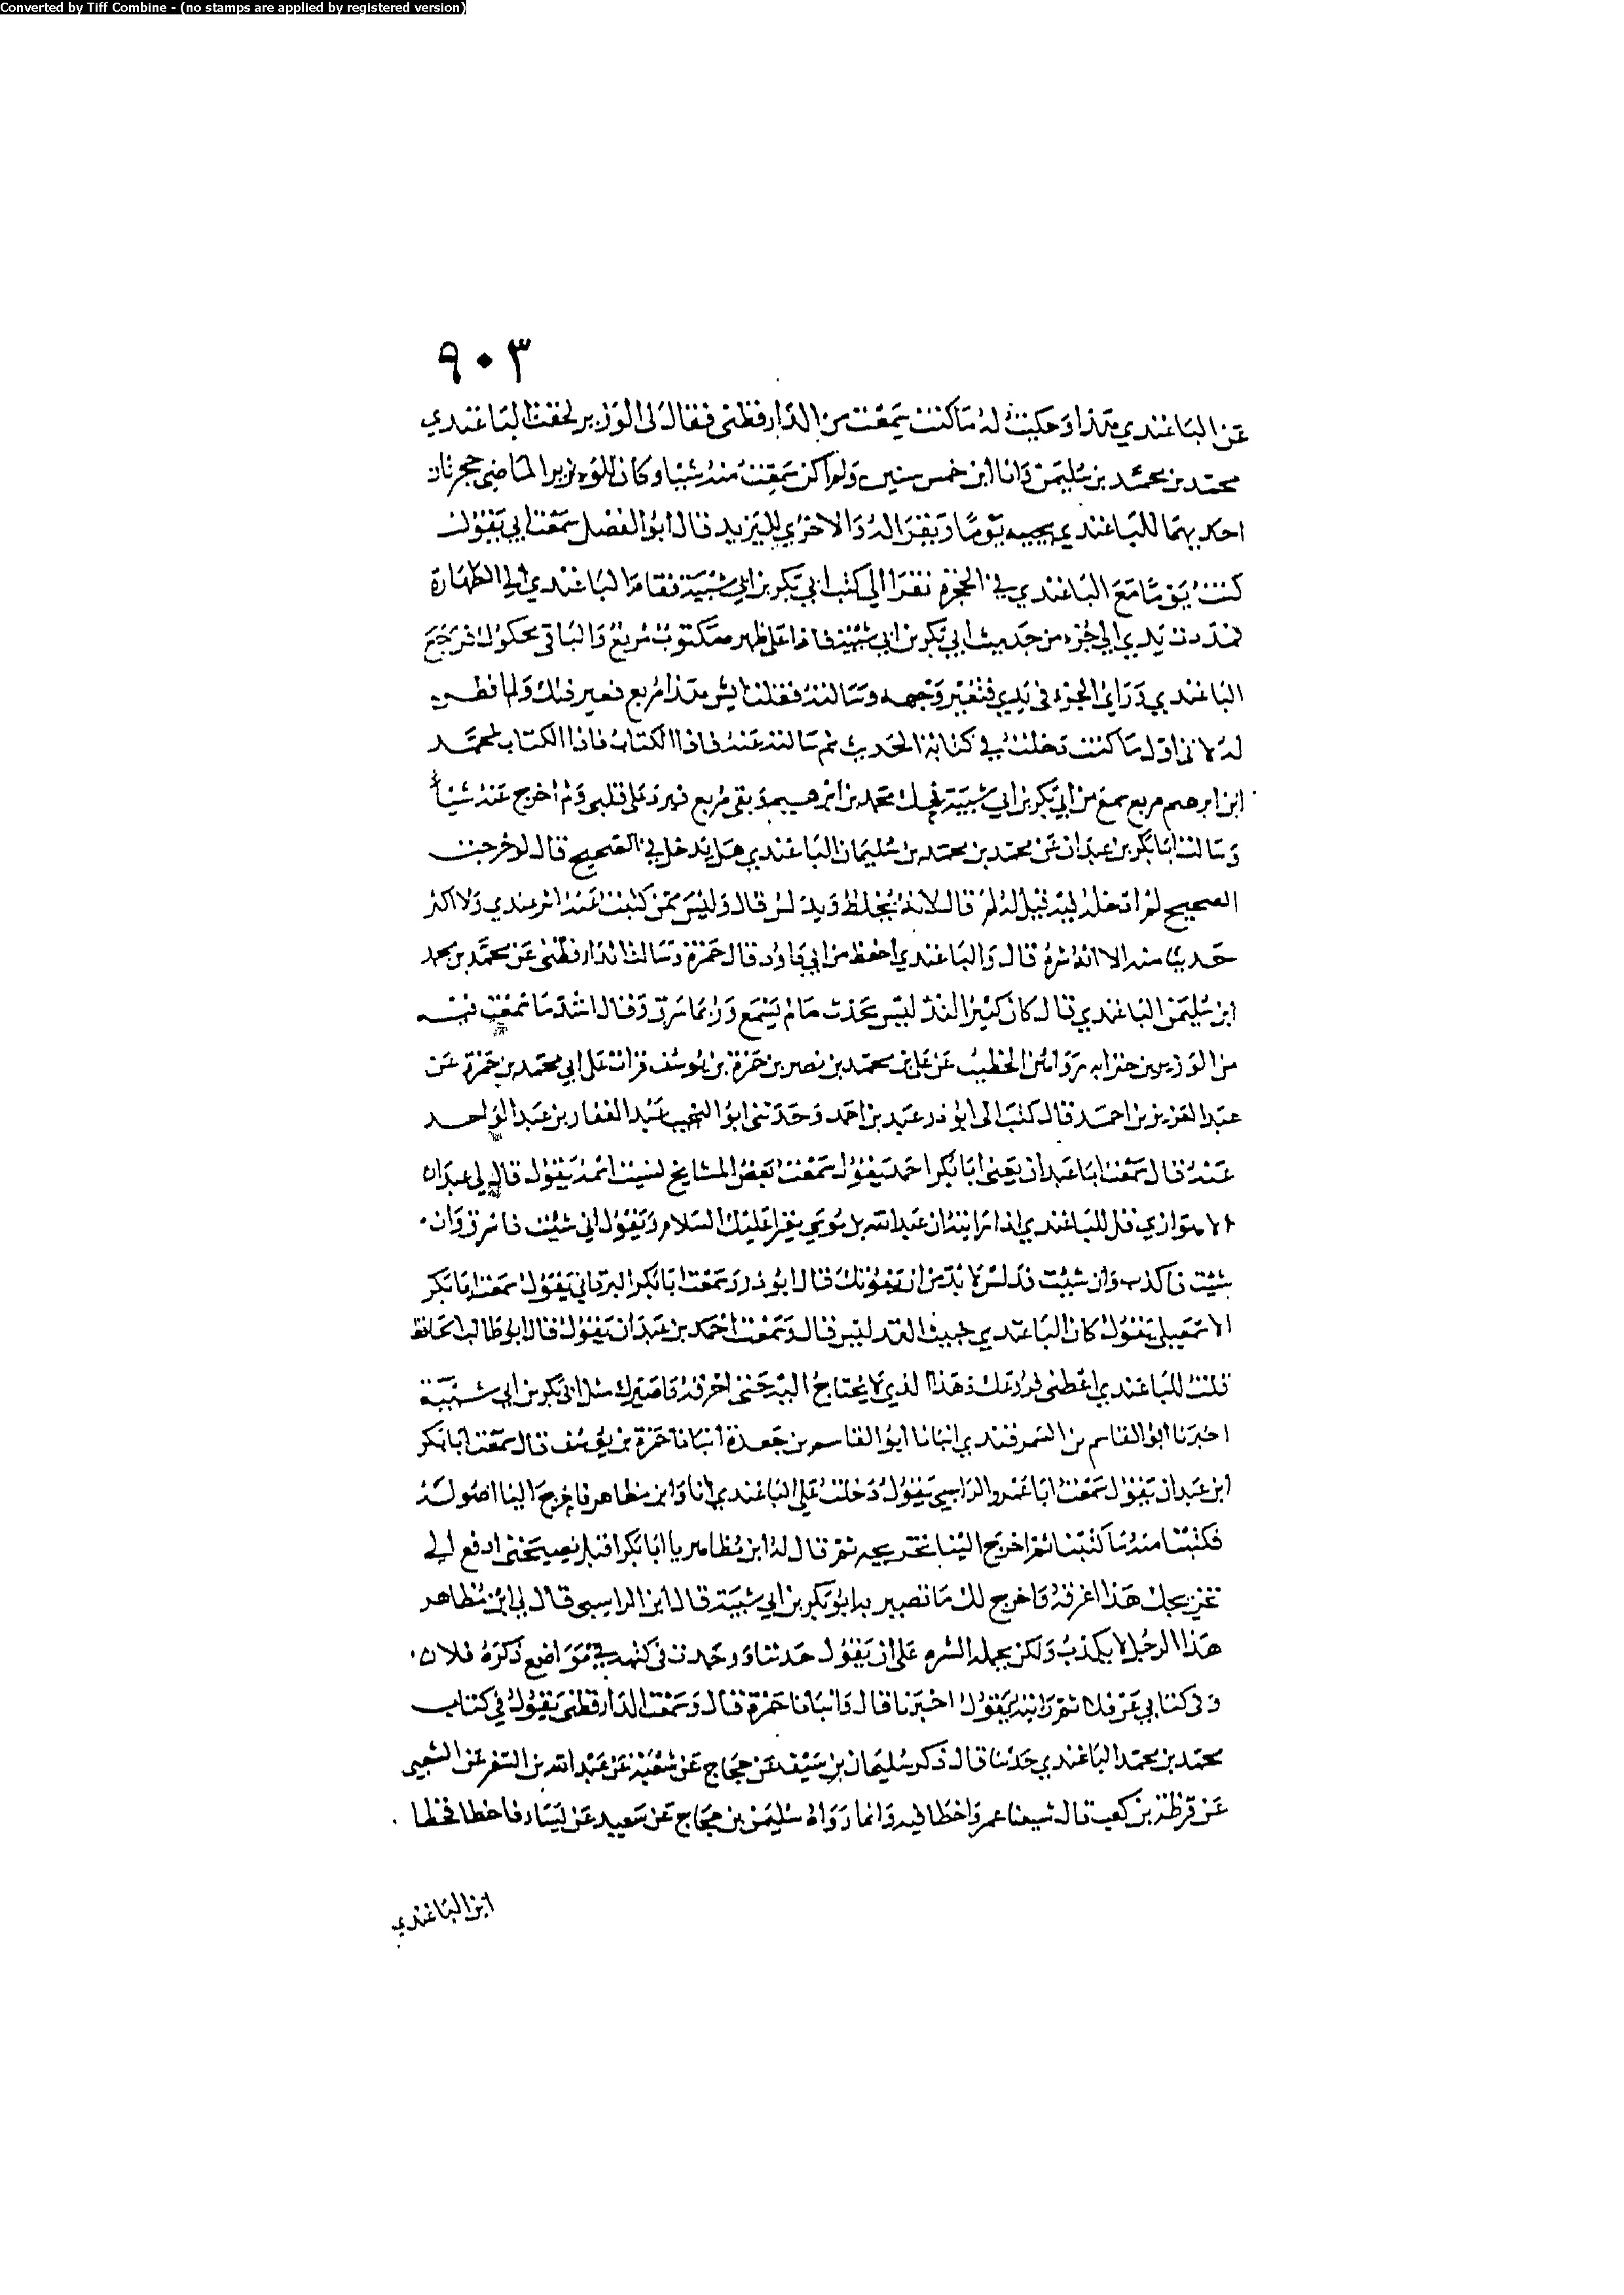 Converted by Tiff Combine - (no stamps are applied by registered version)
٩٠٣
عن الباغندي هذا وحكيت له ما كنت سمعت من الدارقطني فقال لى الوزير لحقت الباغندي
محمد بن محمد بن سليمن وانا ابن خمس سنين ولم اكن سمعت منه شيئا وكان للوزير الماضي حجرتان
احد بهما للباغندي يجيبه يوما ويقرا له والاخرى لليزيد قال ابو الفضل سمعت ابي يقول
كنت يوما مع الباغندي في الحجرة نقرا الي كتب ابي بكر بن ابي شيبة فقام الباغندي الي الطهارة
فمددت يدي الي جزء من حديث ابي بكر بن ابي شيبة فاذا على ظهره مكتوب مربع والباقي محكوك فرجع
الباغندي وراى الجزء في يدي فتغير وجهه وسالته فقلت ايش هذا مربع فغير ذلك ولم افطن
له لانى اول ما كنت دخلت في كتابة الحديث ثم سالت عنه فاذا الكتاب فاذا الكتاب لمحمد
ابن ابرهيم مربع سمع من ابي بكر بن ابي شيبة فحك محمد بن ابرهيم وبقى مربع فبرد على قلبي ولم اخرج عنه شيئا
وسالت ابا بكر بن عبدان عن محمد بن محمد بن سليمان الباغندي هل يدخل في الصحيح قال لو خرجت
الصحيح لم ادخله فيه قيل له لم قال لانه يخلط ويدلس قال وليس ممن كتبت عنه اثر عندي ولا اكثر
حديثا منه الا انه شره قال والباغندي احفظ من ابي داود قال حمزة وسالت الدارقطني عن محمد بن محمد
ابن سليمن الباغندي قال كان كثير التدليس يحدث ما لم يسمع وربما سرق وقال اشد ما سمعت فيه
من الوزير بن حنزابه رواها الخطيب عن على بن محمد بن نصر بن حمزة بن يوسف قرات على ابي محمد بن حمزة عن
عبد العزيز بن احمد قال كتب الى ابو ذر عبد بن احمد وحدثني ابو النجيب عبد الغفار بن عبد الواحد
عنه قال سمعت ابا عبدان يعني ابا بكر احمد يقول سمعت بعض المشايخ نسيت اسمه يقول قال لي عبدان
الاهوازي قل للباغندي اذا رايته ان عبد الله بن موسي يقرا عليك السلام ويقول ان شئت فاسرق وان
شئت فاكذب وان شئت فدلس لا بد من ان يفوتك قال ابو ذر وسمعت ابا بكر البرقاني يقول سمعت ابا بكر
الاسمعيلي يقول كان الباغندي خبيث التدليس قال وسمعت احمد بن عبدان يقول قال ابو طالب الحافظ
قلت للباغندي اعطني فروعك هذا الذي لا يحتاج اليه حتى احرقه فاصيرك مثل ابى بكر بن ابي شيبة
اخبرنا ابو القاسم بن السمرقندي انبانا ابو القاسم بن جعدة انبانا حمزة بن يوسف قال سمعت ابا بكر
ابن عبدان يقول سمعت ابا عمرو الراسبي يقول دخلت على الباغندي انا وابن مظاهر فاخرج الينا اصوله
فكتبنا منه ما كتبنا ثم اخرج الينا تخريجه ثم قال له ابن مظاهر يا ابا بكر اقبل نصيحتى ادفع الي
تخريجك هذا اغرقه واخرج لك ما تصير به ابو بكر بن ابي شيبة قال ابن الراسبي قال لي ابن مظاهر
هذا الرجل لا يكذب ولكن يحمله الشره على ان يقول حدثنا ووجدت في كتبه في مواضع ذكره فلان
وفى كتابي عن فلان ثم رايته يقول اخبرنا قال وانبانا حمزة قال وسمعت الدارقطني يقول في كتاب
محمد بن محمد الباغندي حدثنا قال ذكر سليمان بن سيف عن حجاج عن شعبة عن عبد الله بن السفر عن الشعبي
عن قرظة بن كعب قال شيعنا عمر واخطا فيه وانما رواه سليمن بن حجاج عن سعيد عن بيان فاخطا
ابن الباغندي